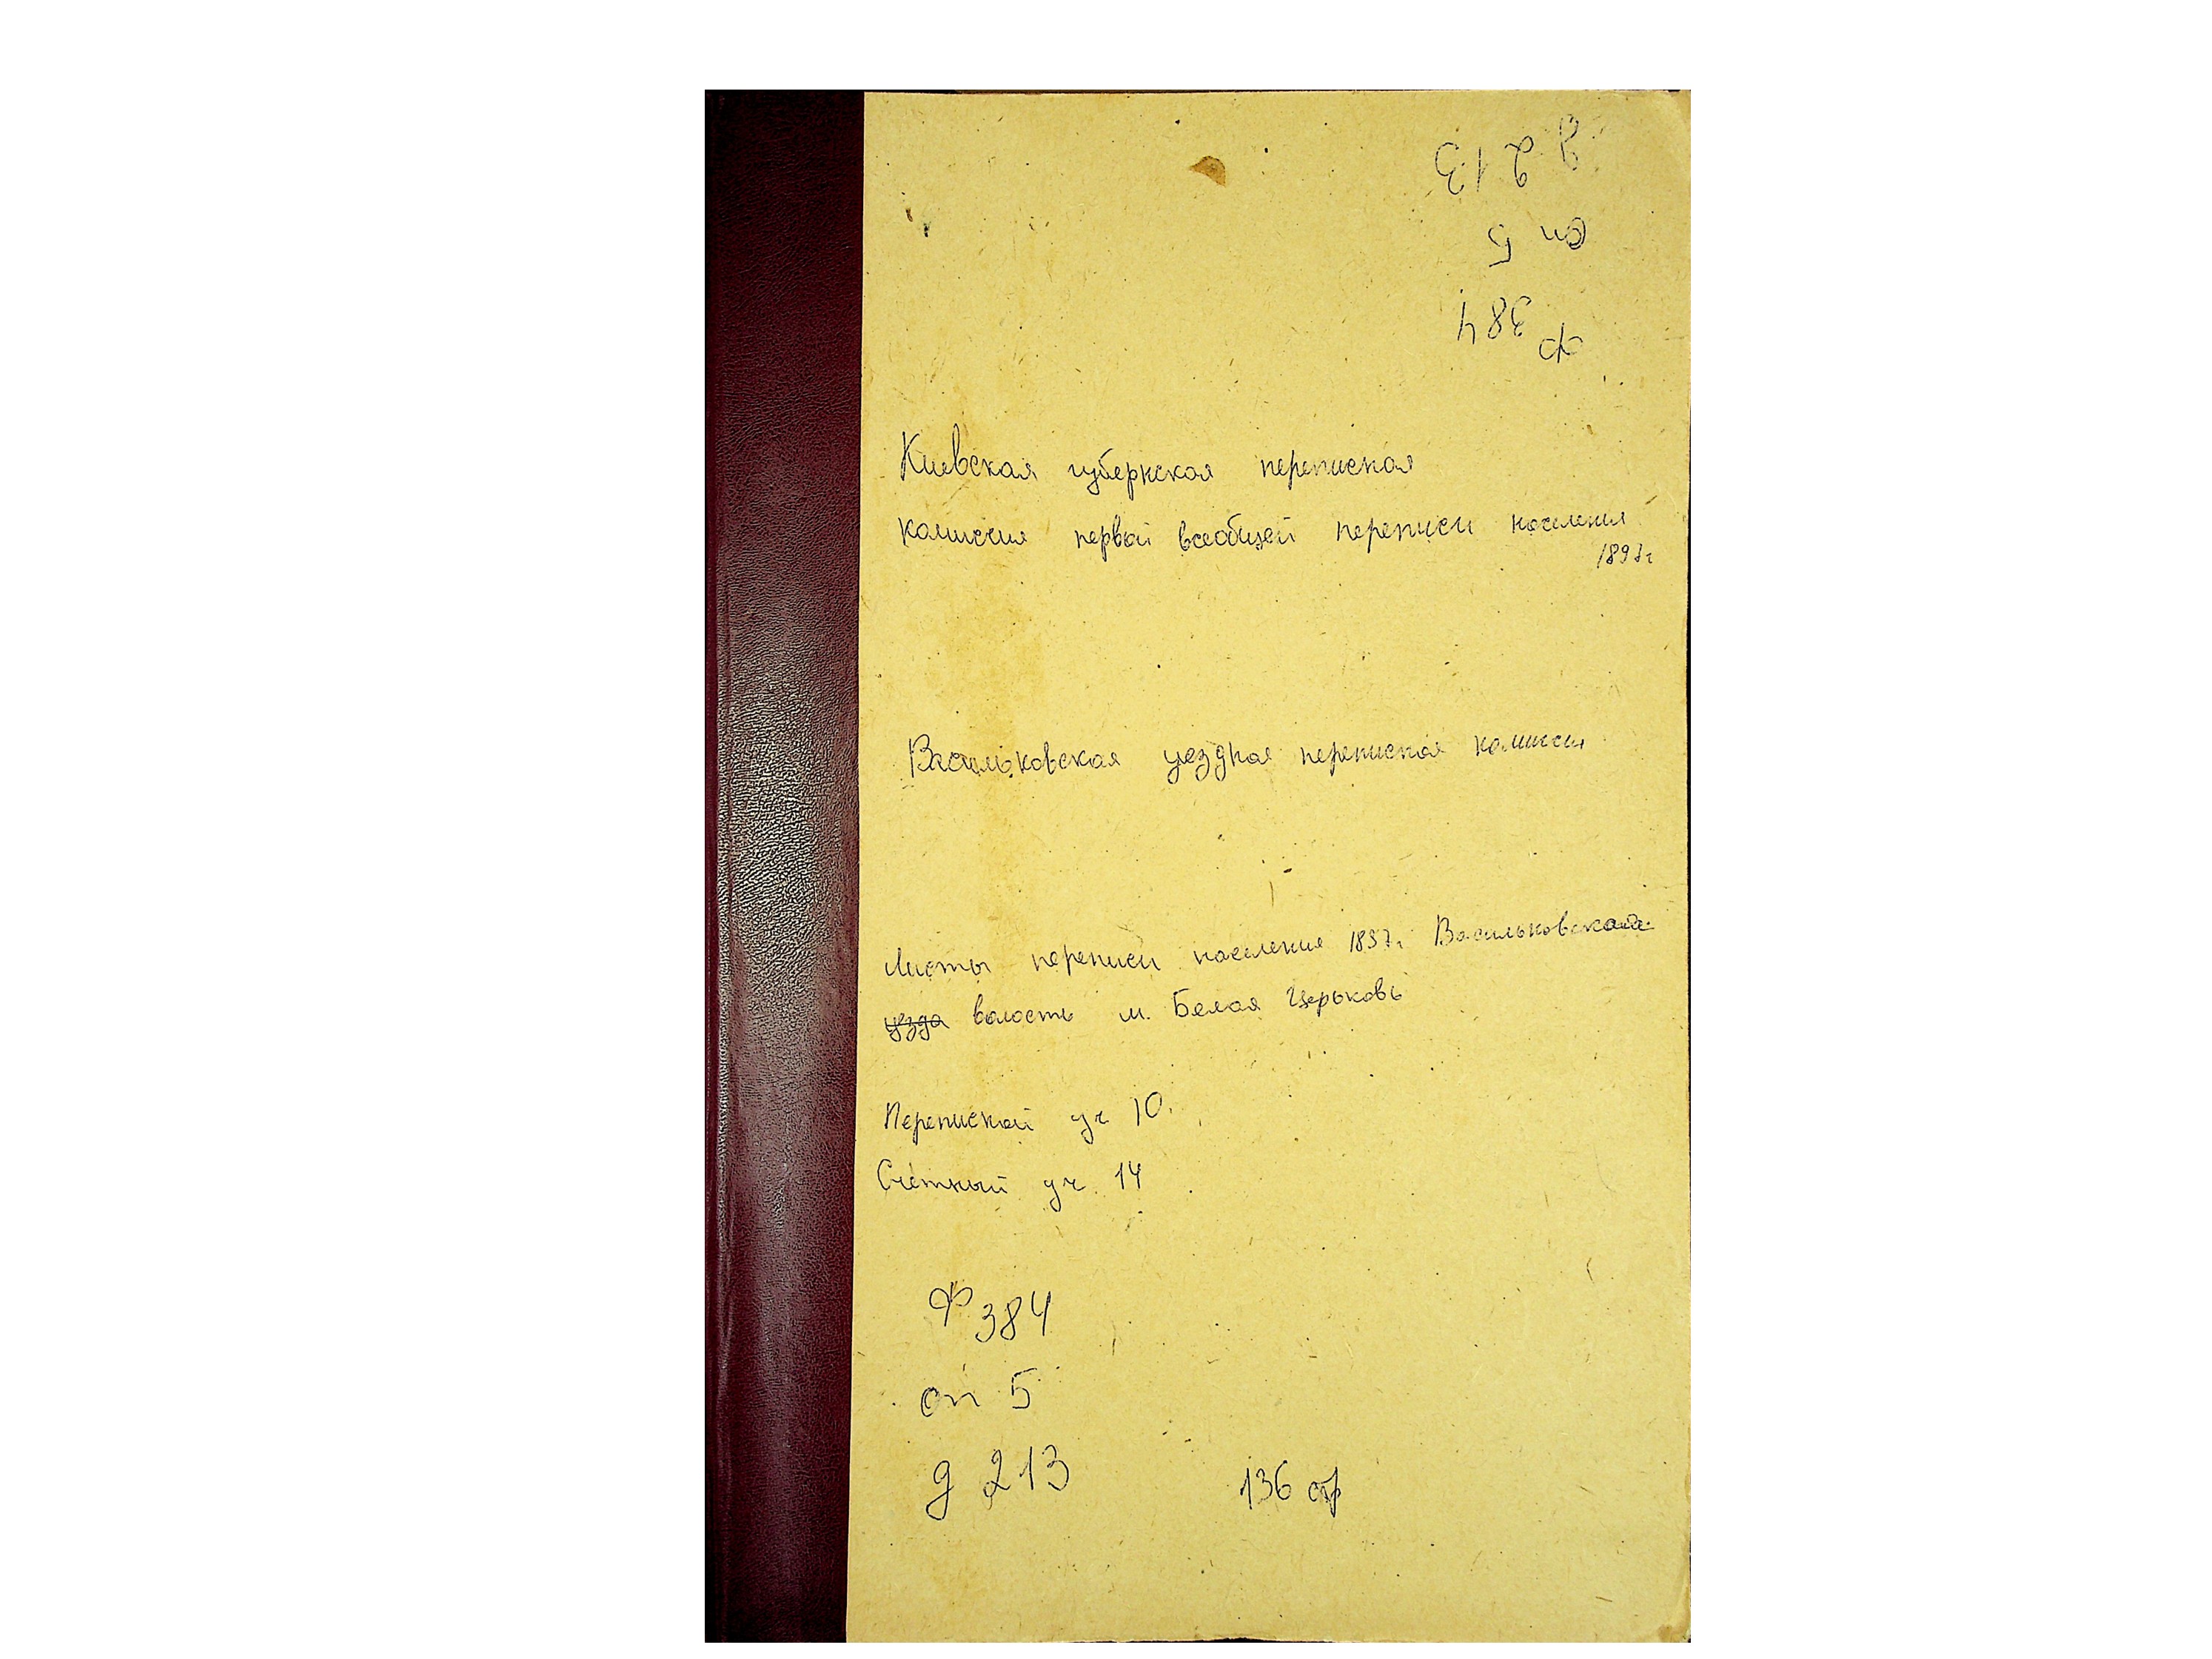 д 213
оп 5
Ф 384
Киевская губернская переписная
комиссия первой всеобщей переписи населения
1897г
Васильковская уездная переписная комиссия
Листы переписи населения 1897г. Васильковская
уезда волость м. Белая Церьковь
Переписной уч 10.
Счётный уч. 14
Ф 384
оп 5
д 213
136 стр